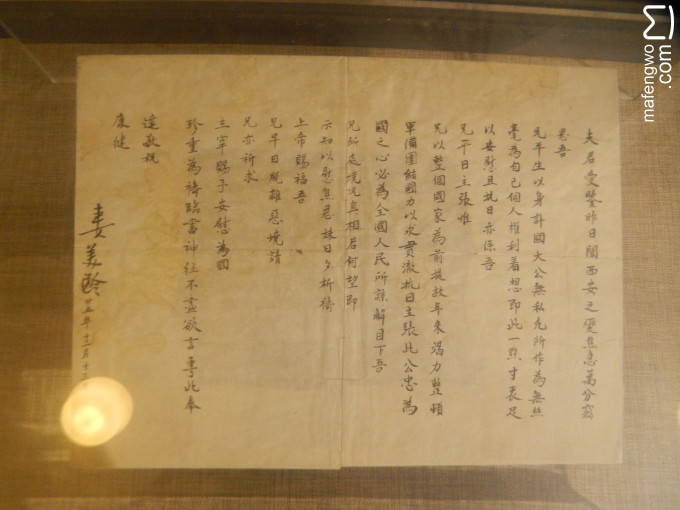 夫君愛鑒昨日聞西安之變焦急萬分竊
思吾
兄平生以身許國大公無私凡所作為無絲
毫為自己個人權利着想即此一點寸衷足
以安慰且抗日亦係吾
兄平日主張惟
兄以整個國家為前提故年來竭力整頓
軍備團結國力以求貫澈抗日主張此公忠為
國之心必為全國人民所諒解目下吾
兄所處境況真相若何望即
示知以慰焦思妹日夕祈禱
上帝賜福吾
兄早日脫離惡境請
兄亦祈求
主宰賜予安慰為國
珍重為禱臨書神往不盡欲言專此奉
達敬祝
康健
妻美齡
廿五年十二月十
mafengwo.com